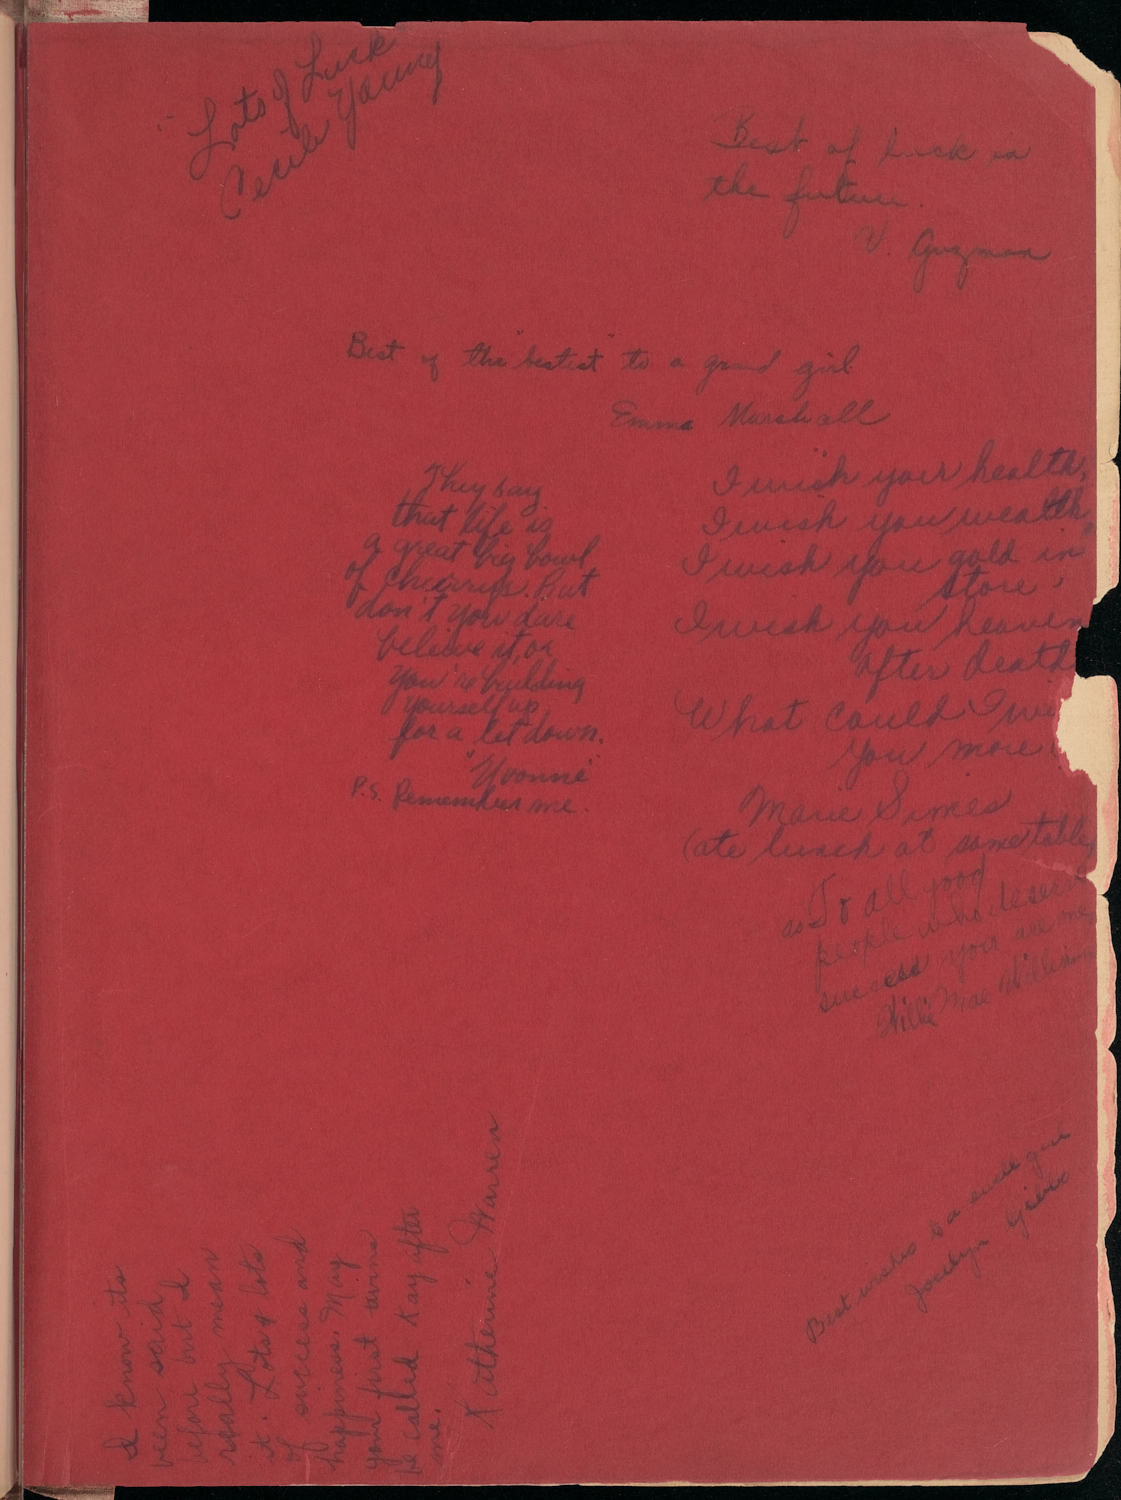 Lots of Luck
Cecile Young
Best of Luck in
the future.
V. Guzman
Best of the "bestest" to a grand girl
Emma Marshall
They say
that life is
a great big bowl
of cherries. But
don't you dare
believe it, or
you're building
yourself up
for a let down.
"Yvonne"
P.S. Remember me.
I wish your health,
I wish you wealth,
I wish you gold in
store,
I wish you heaven
after death
What could I wi
you more!
Marie Simes
(ate lunch at same table)
To all good
people who deserve
success you are me
Willie Mae Williams
I know its
been said
before but I
really mean
it. Lots & lots
of success and
happiness. May
your first twins
be called Kay after
me.
Katherine Warren
Best wishes to a girl
Jocelyn